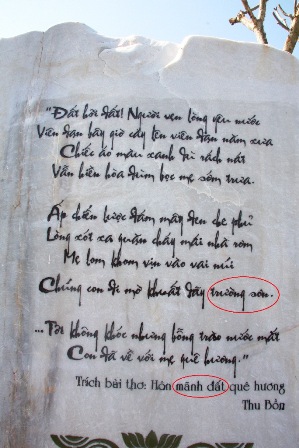 "Đất hỡi đất! Người vẹn lòng yêu nước
Vẫn đạn bây giờ cày lên viên đạn năm xưa
Chiếc áo màu xanh dù rách nát
Vẫn hiền hòa đùm bọc mẹ sớm trưa.
Ấp chiến lược đám mây đen che phủ
Lòng xót xa quặn cháy mái nhà rơm
Mẹ lom khom vịn vào vai núi
Chúng con đi mở khuất dãy trường sơn.
...Tôi không khóc nhưng bỗng trào nước mắt
Con đã về với mẹ quê hương."
Trích bài thơ: Hôn mãnh đất quê hương
Thu Bồn